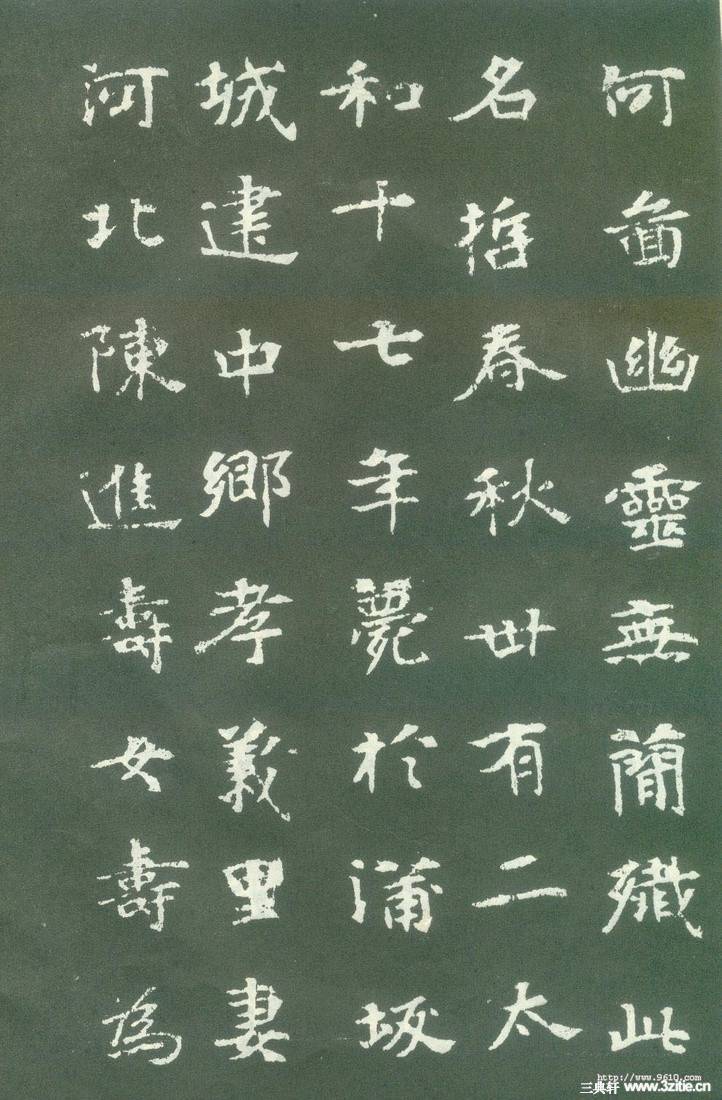 何啚幽靈無簡殲此
名哲春秋卅有二太
和十七年薨於蒲坂
城建中鄉孝義里妻
河北陳進壽女壽為
http://www.9610.com
三典轩 www.3zitie.cn